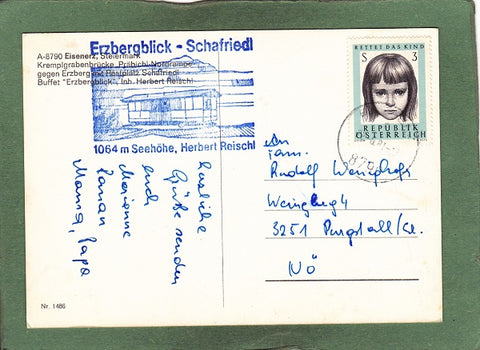 A-8790 Eisenerz, Steiermark
Kremplgrabenbrücke „Präbichl-Nordrampe“
gegen Erzberg mit Rastplatz Schafriedl
Buffet "Erzbergblick", Inh. Herbert Reischl
Erzbergblick - Schafriedl
1064 m Seehöhe, Herbert Reischl
RETTET DAS KIND
S 3
REPUBLIK
ÖSTERREICH
8790
Herzliche
Grüße senden
euch
Marianne
Mama, Papa
An
Fam.
Rudolf
Weinzierlg 4
3251 Purgstall/Erl.
NÖ
Nr. 1486